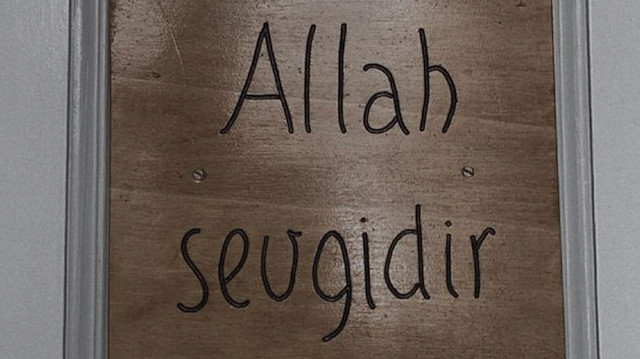 Allah
sevgidir